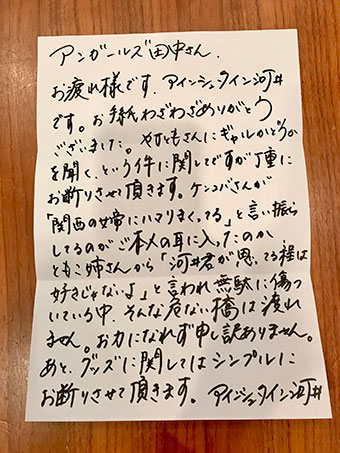 アンガールズ田中さん、
お疲れ様です、アインシュタイン河井
です。お手紙わざわざありがとう
ございました。やすともさんにギャルかどうか
を聞く、という件に関してですが丁重に
お断りさせて頂きます。ケンコバさんが
「関西の女帝にハマりまくってる」と言い振ら
してるのがご本人の耳に入ったのか
ともこ姉さんから「河井君が思ってる程は
好きじゃないよ」と言われ無駄に傷つ
いている中、そんな危ない橋は渡れ
ません。お力になれず申し訳ありません。
あと、グッズに関してはシンプルに
お断りさせて頂きます。アインシュタイン河井